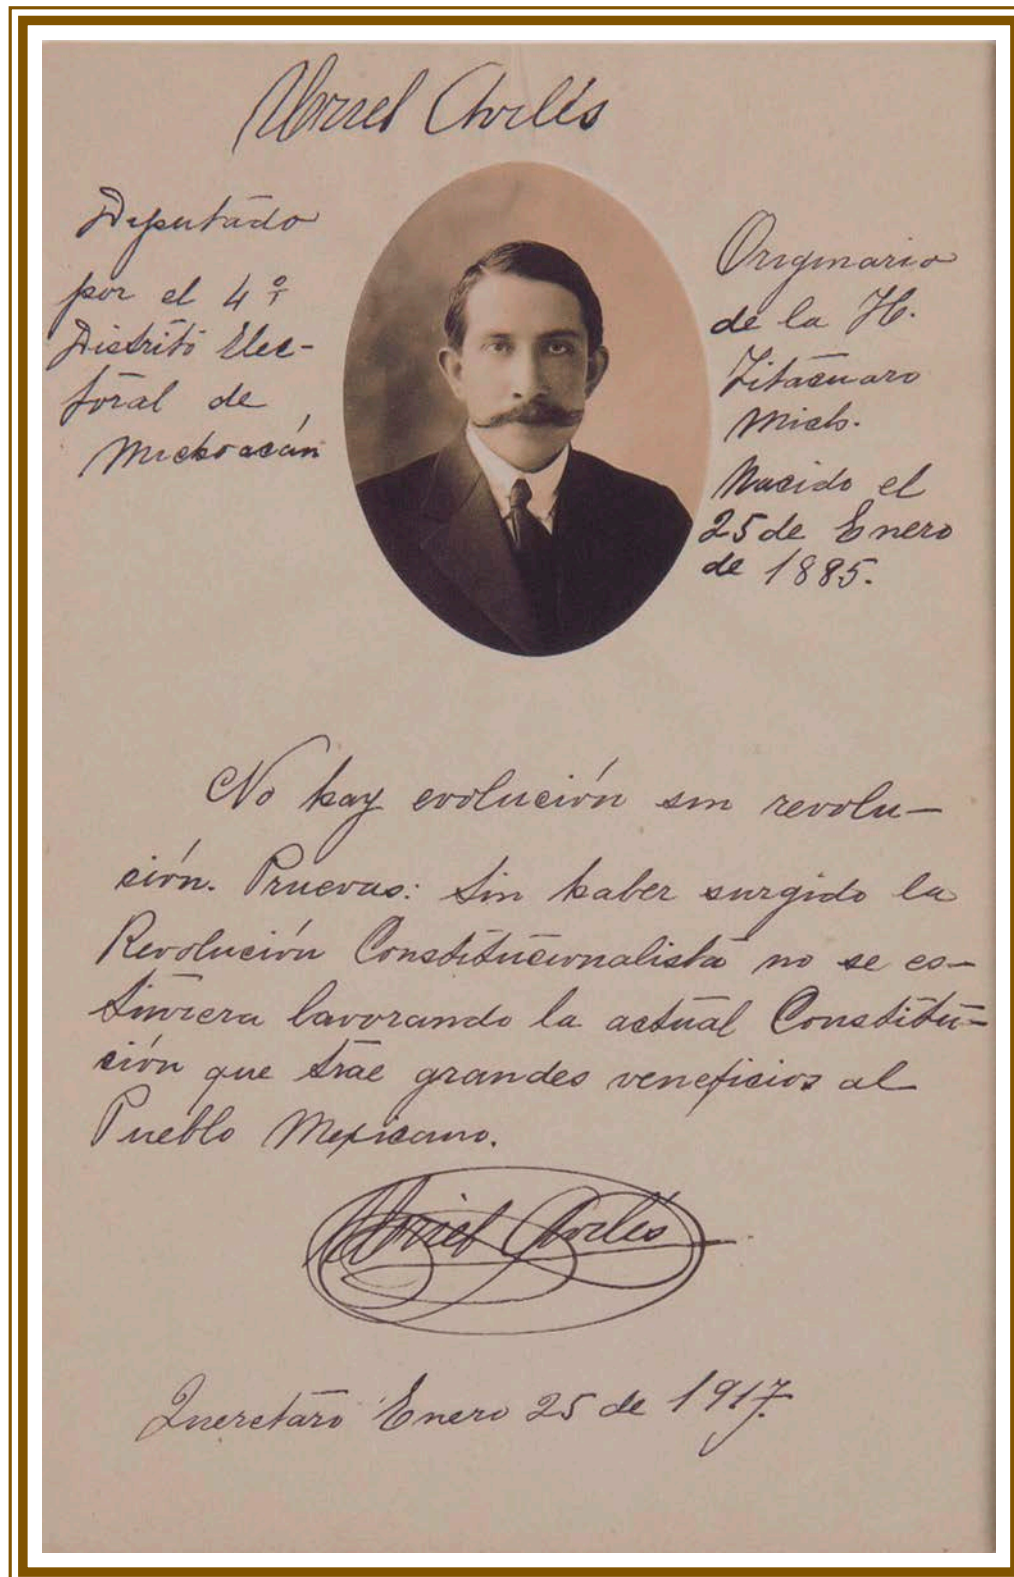 Uriel Avilés
Diputado
por el 4º
Distrito Elec-
toral de
Michoacán
Originario
de la H.
Zitácuaro
Mich.
Nacido el
25 de Enero
de 1885.
No hay evolución sin revolu-
ción. Pruevas: Sin haber surgido la
Revolución Constitucionalista no se es-
tuviera lavorando la actual Constitu-
ción que trae grandes veneficios al
Pueblo Mexicano.
Uriel Avilés
Queretaro Enero 25 de 1917.